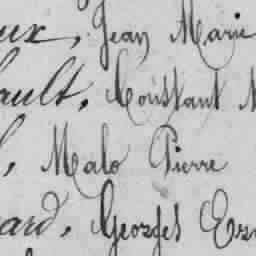 ux, Jean Marie
ault, Constant
, Malo Pierre
ard, Georges